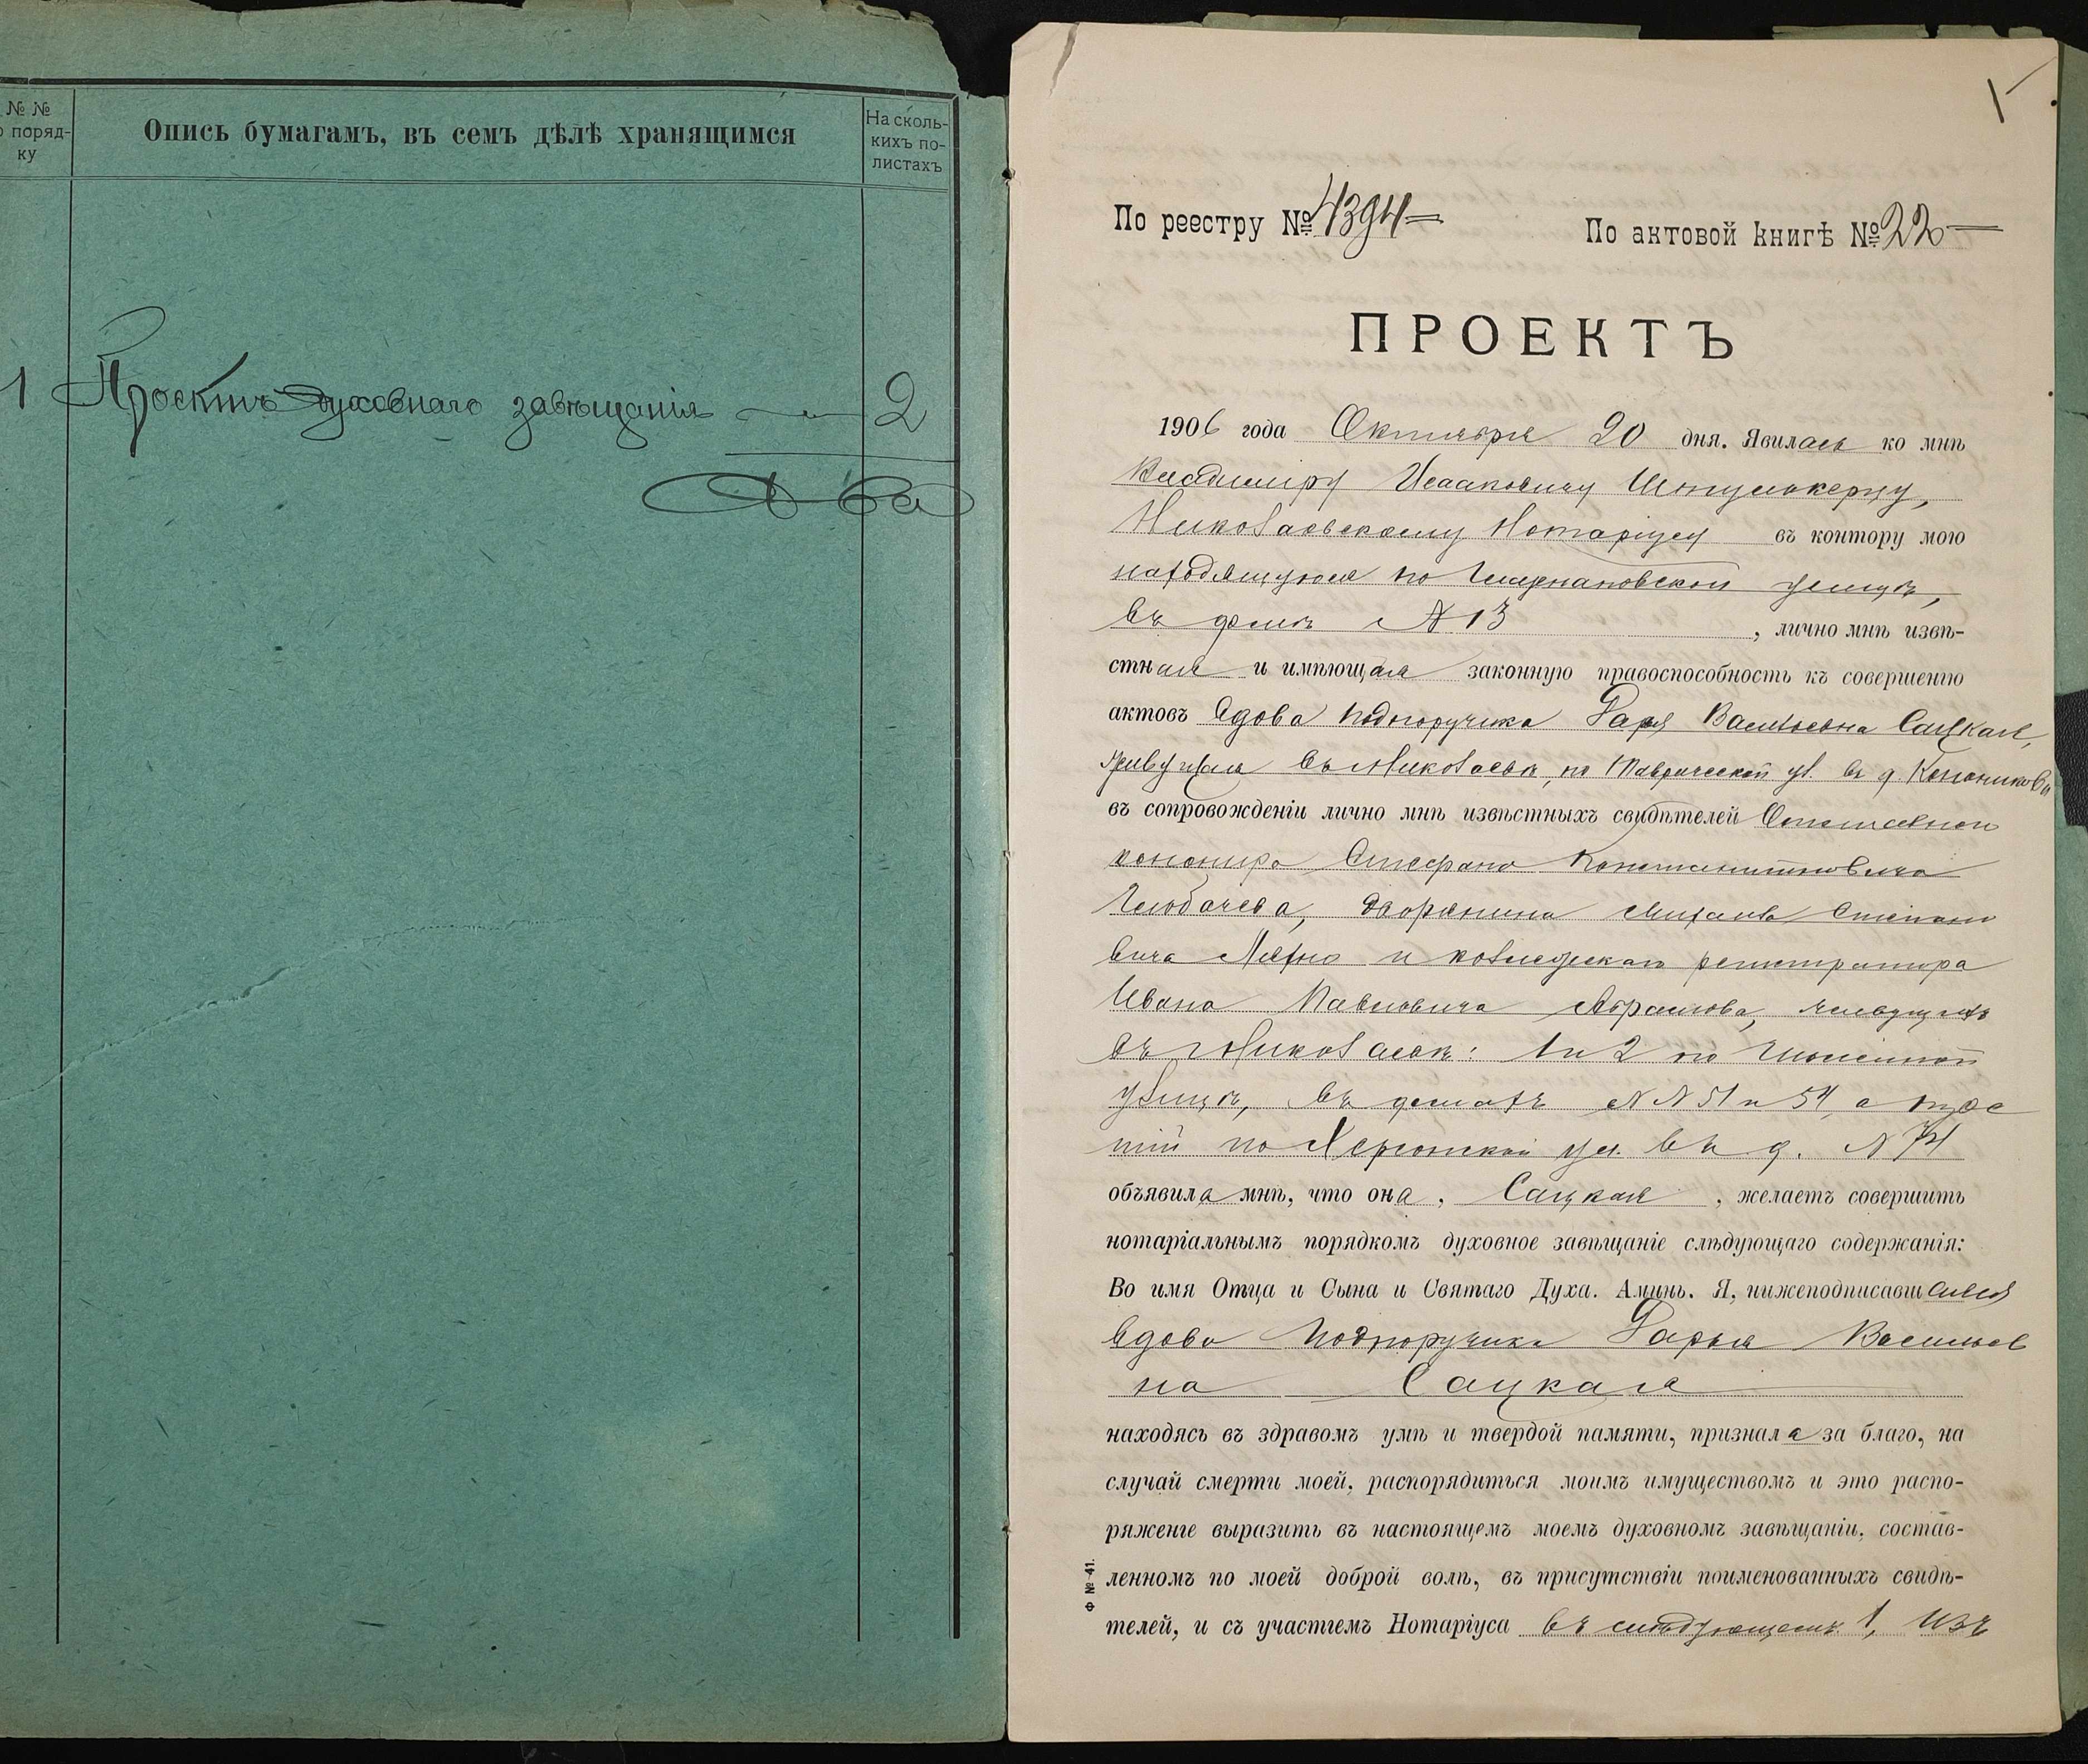 № №
поряд-
ку
Опись бумагамъ, въ семъ дѣлѣ хранящимся
На сколь-
кихъ по-
листахъ
1 Проектъ духовнаго завѣщанія — 2
Два
По реестру № 4394
По актовой книгѣ № 22
ПРОЕКТЪ
1906 года Октября 20 дня. Явилась ко мнѣ
Владиміру Исааковичу
Николаевскому Нотаріусу въ контору мою
находящуюся по улицѣ,
въ домѣ № 13, лично мнѣ извѣ-
стная и имѣющая законную правоспособность къ совершенію
актовъ вдова подпоручика Дарья Васильевна Сацкая,
живущая въ Николаевѣ, по Таврической ул. въ д.
въ сопровожденіи лично мнѣ извѣстныхъ свидѣтелей Отставного
Константиновича
дворянина Михаила Степано
вича и коллежскаго регистратора
Ивана Павловича Абрамова, живущихъ
въ г. Николаевѣ: 1 и 2 по
улицѣ, въ домахъ №№ 51 и 54, а тре
тій по Херсонской ул. въ д. № 74
объявила мнѣ, что она, Сацкая, желаетъ совершить
нотаріальнымъ порядкомъ духовное завѣщаніе слѣдующаго содержанія:
Во имя Отца и Сына и Святаго Духа. Аминь. Я, нижеподписавшаяся
вдова подпоручика Дарья Васильев
на Сацкая
находясь въ здравомъ умѣ и твердой памяти, признала за благо, на
случай смерти моей, распорядиться моимъ имуществомъ и это распо-
ряженіе выразить въ настоящемъ моемъ духовномъ завѣщаніи, состав-
ленномъ по моей доброй волѣ, въ присутствіи поименованныхъ свидѣ-
телей, и съ участіемъ Нотаріуса въ слѣдующемъ: 1, Изъ
Ф № 41.